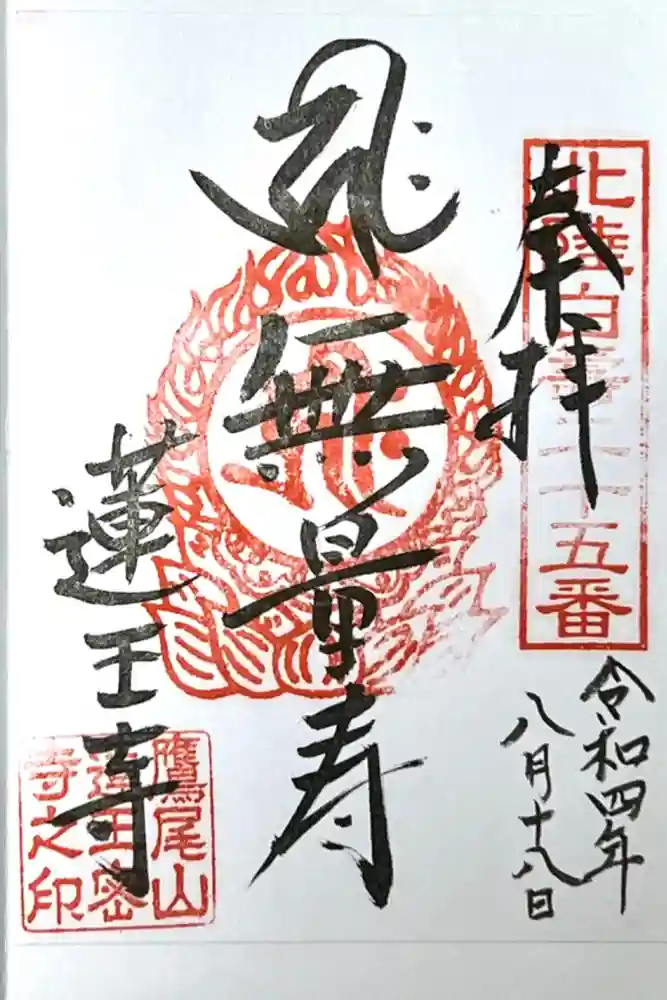 北陸白寿三十五番
奉拝
令和四年
八月十八日
無量寿
蓮王寺
鷹尾山
蓮王密
寺之印